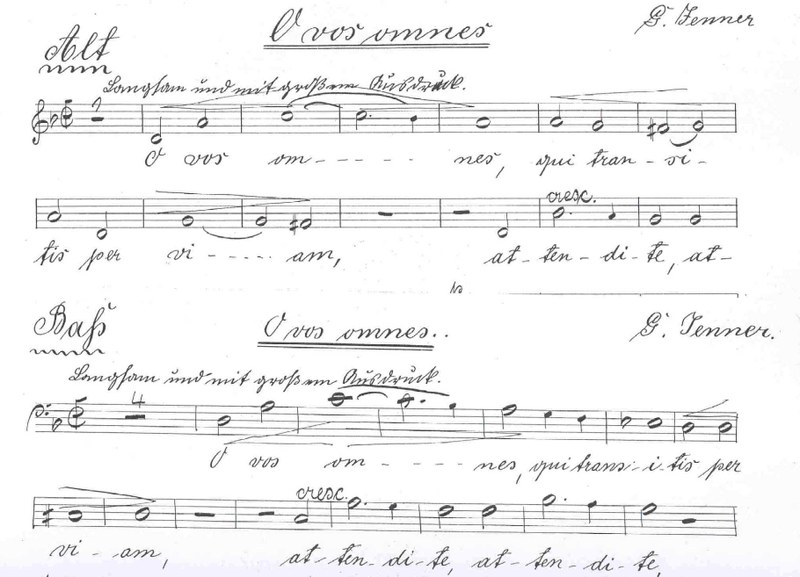 O vos omnes
G. Jenner
Alt
Langsam und mit großem Ausdruck.
2
O vos om - - - - - nes, qui tran - si -
cresc.
tis per vi - - - - am, at - ten - di - te, at -
Baß
O vos omnes..
G. Jenner.
Langsam und mit großem Ausdruck.
4
O vos om - - - - nes, qui trans - i - tis per
cresc.
vi - am, at - ten - di - te, at - ten - di - te,